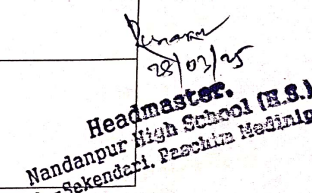 28/02/25
Headmaster.
Nandanpur High School (H.S.)
Sekendari. Paschim Medinip